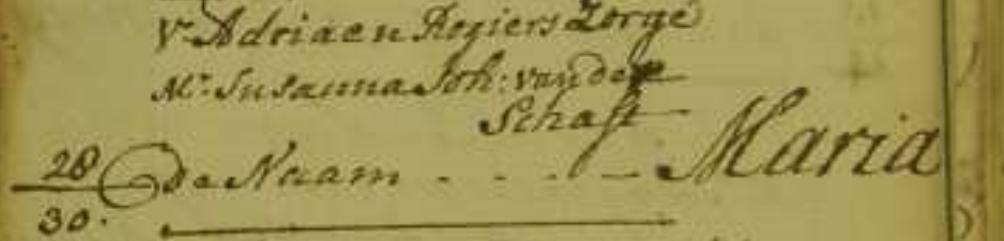 Vr. Adriaen Rogiers Zorge
Mr. Susanna Joh: van der
Schaft
28 de Naam - - - - Maria
30.